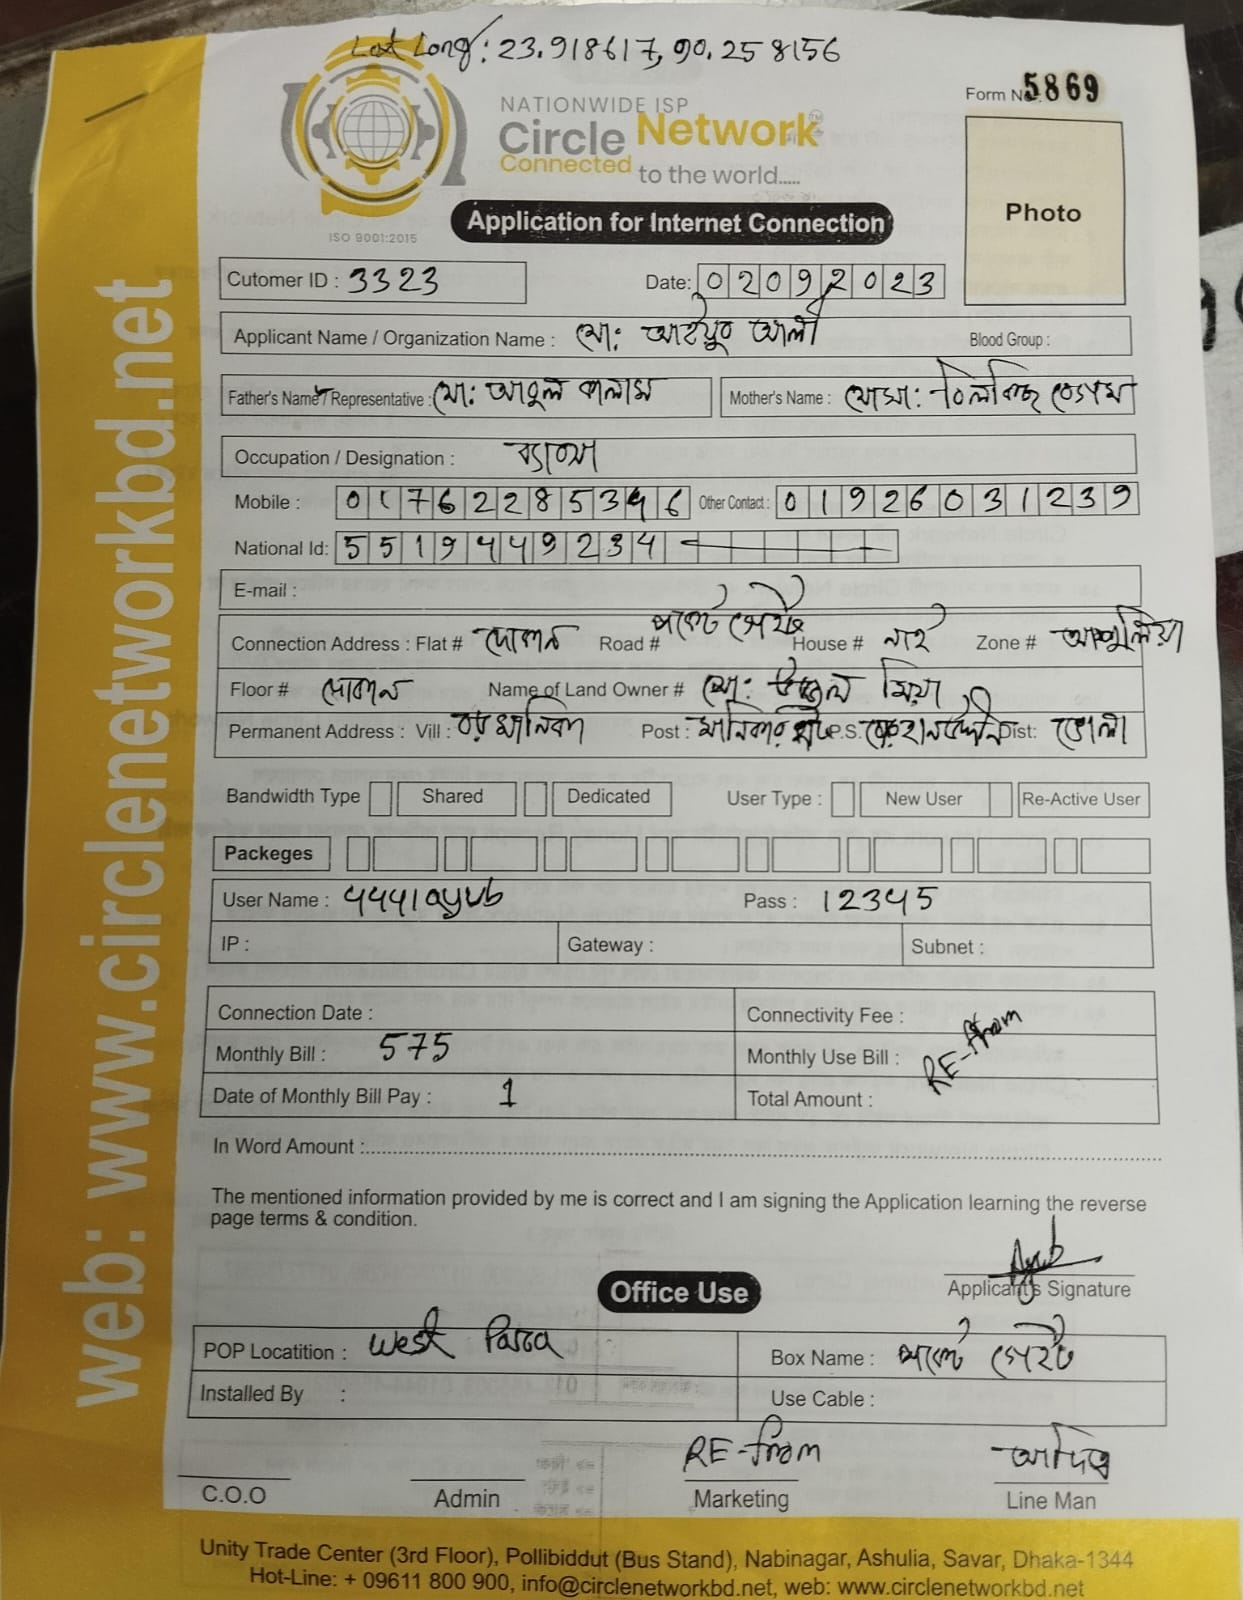 Lat Long: 23.918617, 90.258156
Form No. 5869
NATIONWIDE ISP
Circle Network
Connected to the world.....
ISO 9001:2015
Photo
Application for Internet Connection
Cutomer ID : 3323 Date: 02092023
Applicant Name / Organization Name : মো: আইয়ুব আলী Blood Group :
Father's Name / Representative : মো: আবুল কালাম Mother's Name : মোসা: বিলকিছ বেগম
Occupation / Designation :
Mobile : 01762285346 Other Contact : 01926031239
National Id: 5519449234
E-mail :
Connection Address : Flat # দোকান Road # পকেট গেইট House # নাই Zone # আশুলিয়া
Floor # দোকান Name of Land Owner # মো: মিয়া
Permanent Address : Vill : বড় মানিকা Post : মানিকার হাট P.S. বোরহানউদ্দীন Dist: ভোলা
Bandwidth Type Shared Dedicated User Type : New User Re-Active User
Packeges
User Name : 4441ayub Pass : 12345
IP : Gateway : Subnet :
Connection Date : Connectivity Fee :
Monthly Bill : 575 Monthly Use Bill :
Date of Monthly Bill Pay : 1 Total Amount :
In Word Amount :
The mentioned information provided by me is correct and I am signing the Application learning the reverse
page terms & condition.
Ayub
Applicant's Signature
Office Use
POP Locatition : West Para Box Name : পকেট গেইট
Installed By : Use Cable :
C.O.O Admin Marketing Line Man
Unity Trade Center (3rd Floor), Pollibiddut (Bus Stand), Nabinagar, Ashulia, Savar, Dhaka-1344
Hot-Line: + 09611 800 900, info@circlenetworkbd.net, web: www.circlenetworkbd.net
web: www.circlenetworkbd.net